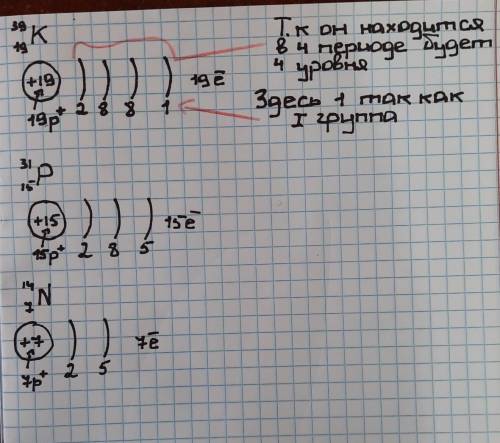 39
19 K
+19 ) ) ) ) 19ē
19p⁺ 2 8 8 1
Т.к он находится
в 4 периоде будет
4 уровня
Здесь 1 так как
I группа
31
15 P
+15 ) ) ) 15ē
15p⁺ 2 8 5
14
7 N
+7 ) ) 7ē
7p⁺ 2 5